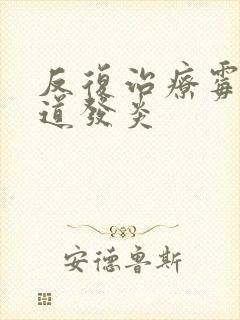 反復治療霉
道發炎
安德魯斯